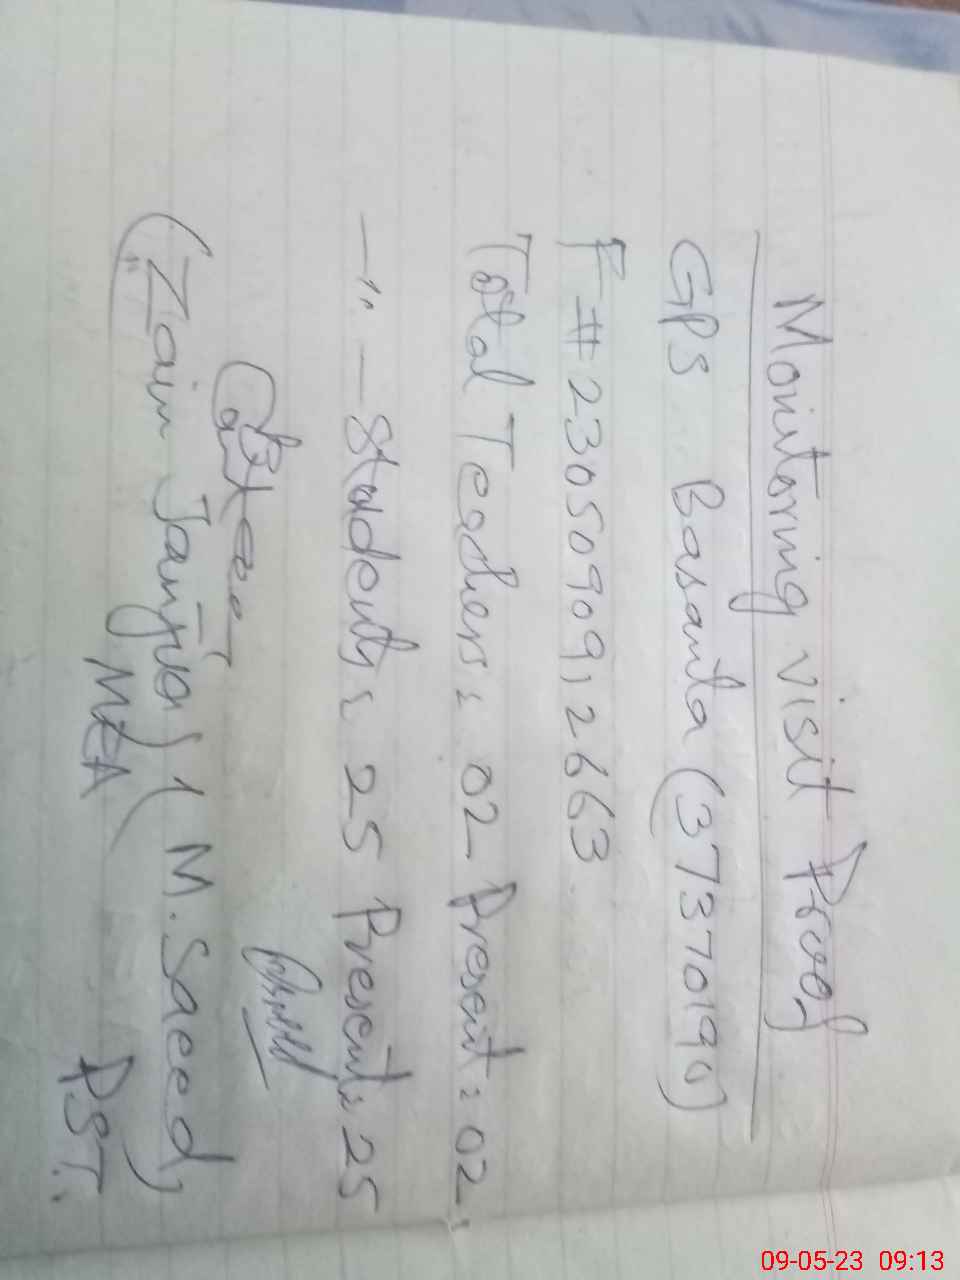 Monitoring visit Proof
GPS Basanta (37370190)
F # 23050909,2663.
Total Teachers: 02 Present: 02.
–〃–Students: 25 Present: 25
(Zain Janjua) (M. Saeed)
MEA PST.
09-05-23 09:13